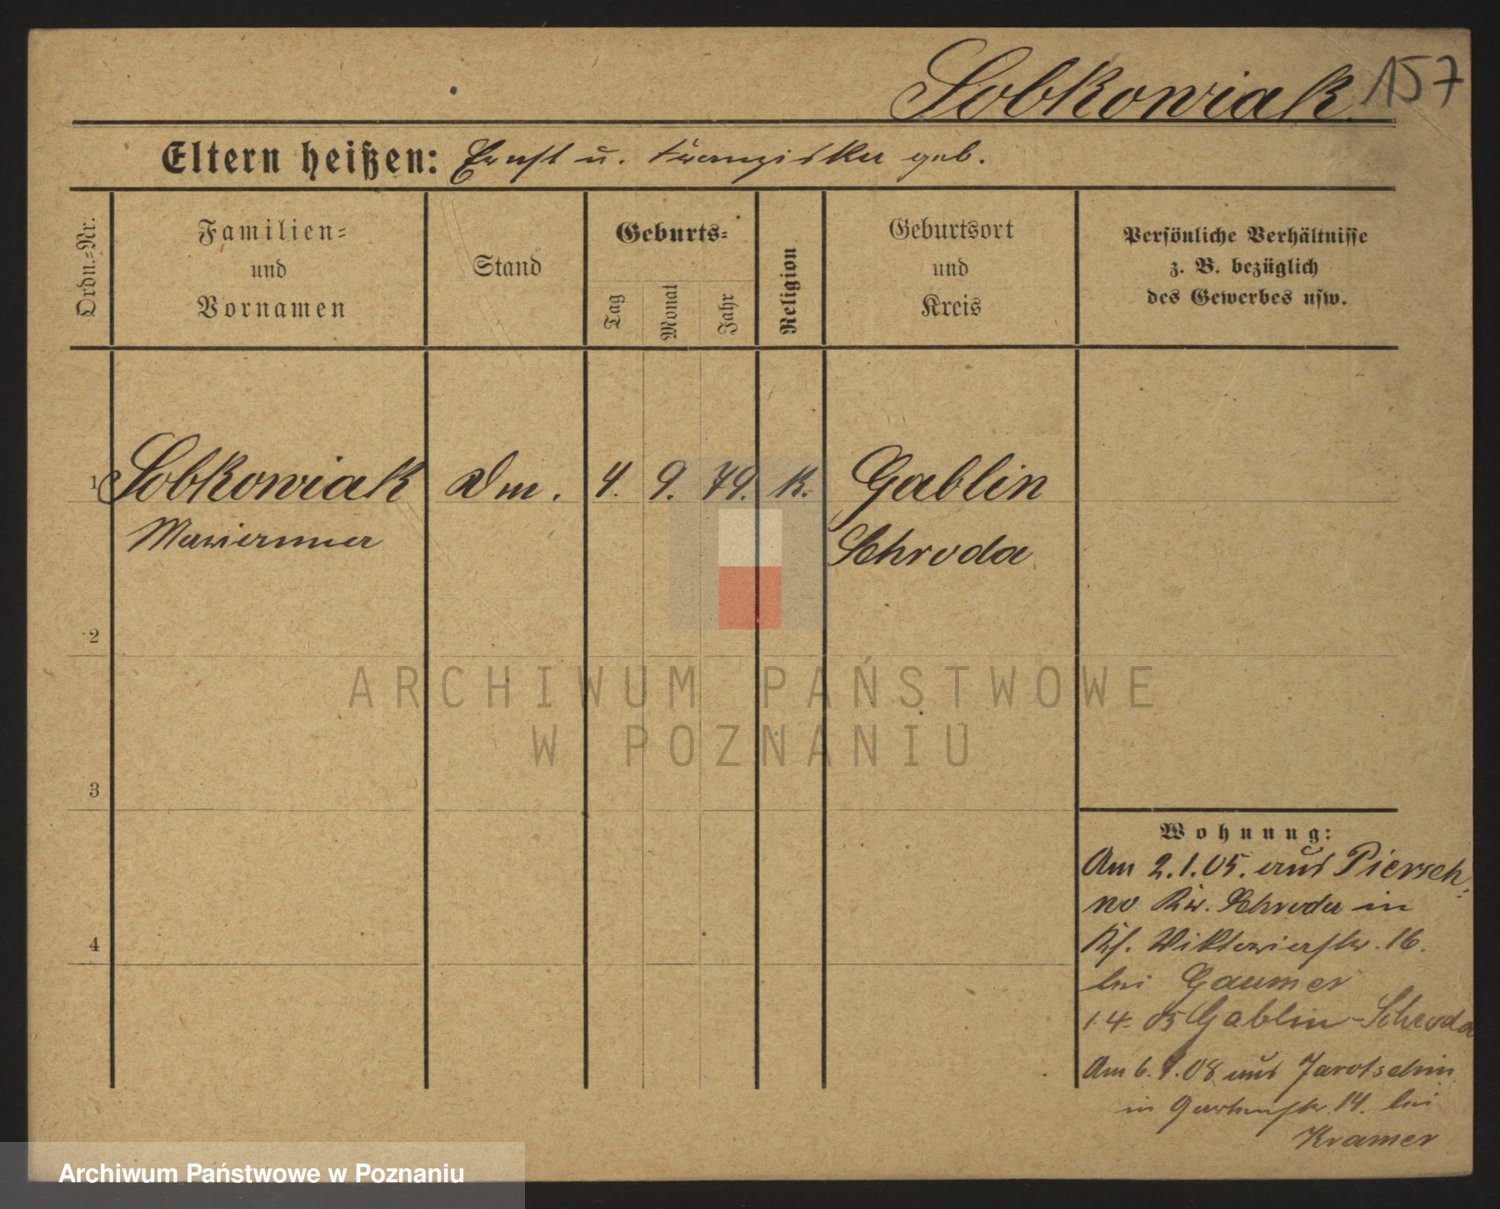 Sobkowiak. 157
Eltern heißen: Ernst u. Franziska geb.
Ordn.-Nr.
Familien-
und
Vornamen
Stand
Geburts-
Tag
Monat
Jahr
Religion
Geburtsort
und
Kreis
Persönliche Verhältnisse
z. B. bezüglich
des Gewerbes usw.
1 Sobkowiak Dm. 4. 9. 79. K. Gablin
Marianna Schroda
2
ARCHIWUM PAŃSTWOWE
W POZNANIU
3
Wohnung:
Am 2.1.05. aus Piersch-
no Kr. Schroda in
Viktoriastr. 16.
bei Gaumer
1.4.05 Gablin-Schroda
Am 6. .08 aus Jarotschin
in Gartenstr. 14. bei
Kramer
4
Archiwum Państwowe w Poznaniu